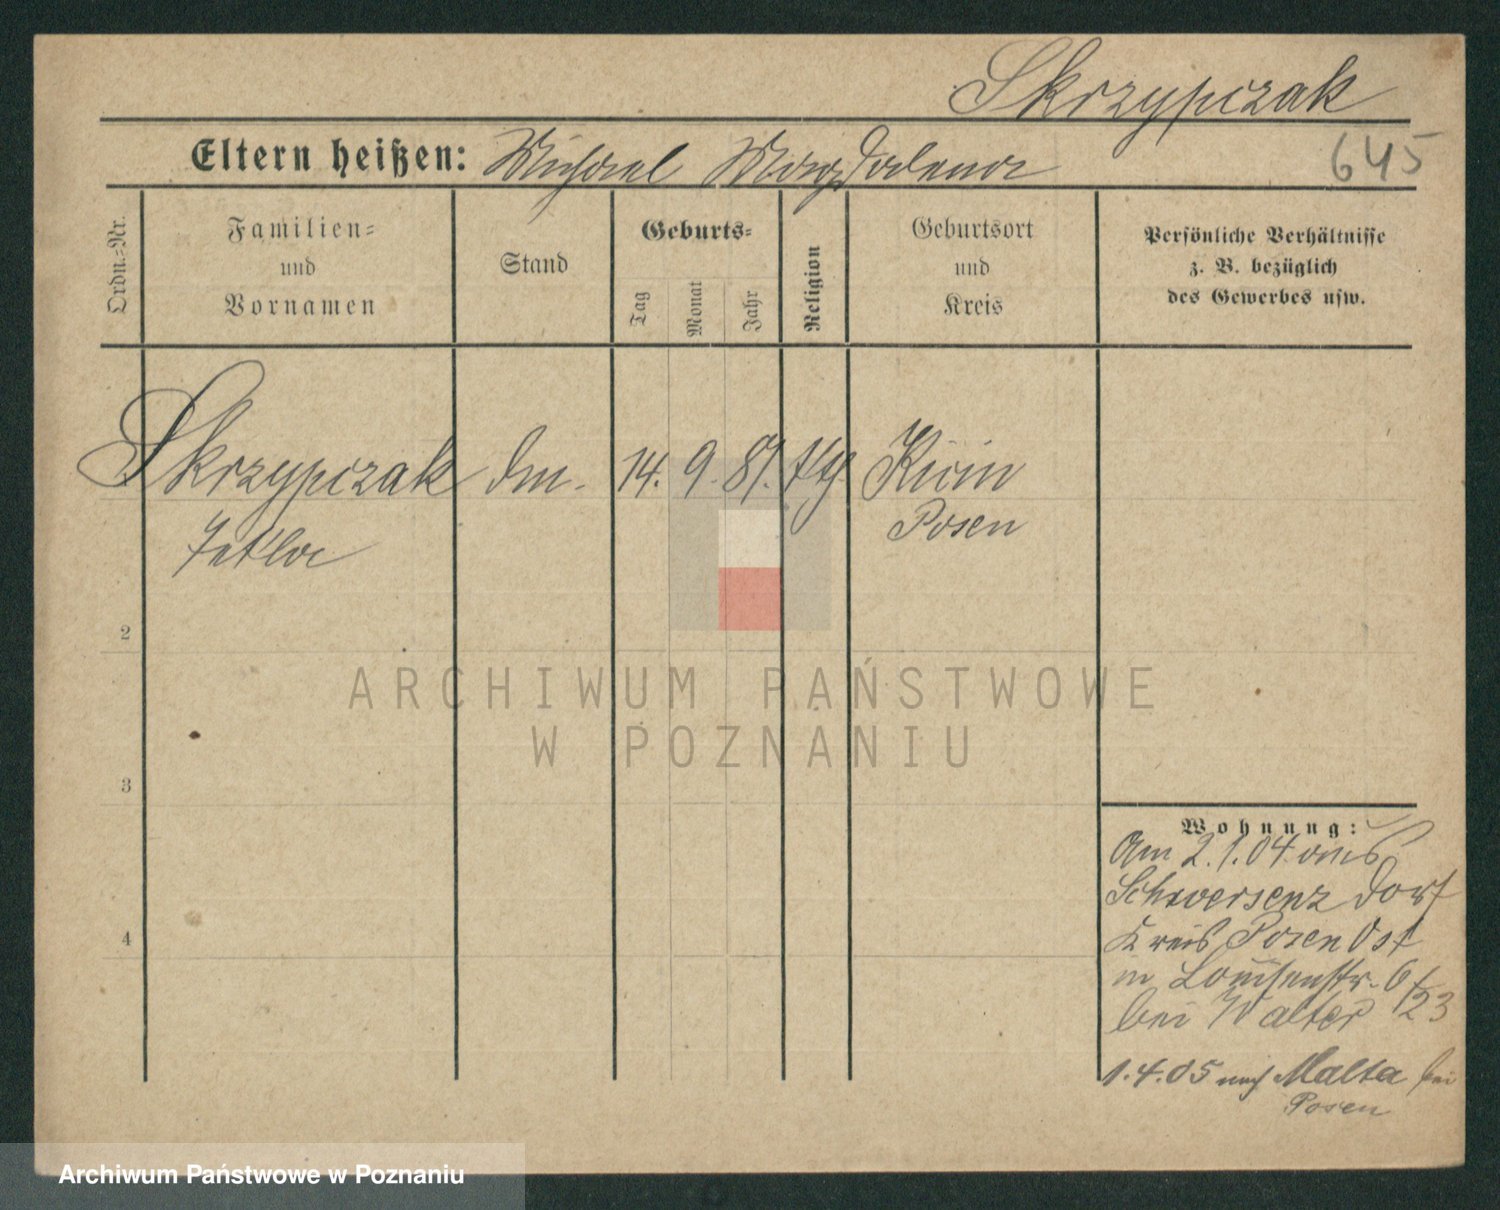 Skrzypczak
Eltern heißen: Michael Magdalena
645
Ordn.-Nr.
Familien-
und
Vornamen
Stand
Geburts-
Tag
Monat
Jahr
Religion
Geburtsort
und
Kreis
Persönliche Verhältnisse
z. B. bezüglich
des Gewerbes usw.
Skrzypczak
14. 9. 81.
Kicin
Posen
2
3
4
Wohnung:
Am 2.1.04 aus
Schwersenz Dorf
Kreis Posen Ost
in Louisenstr. 6/23
bei Walter
1.4.05 nach Malta bei
Posen
ARCHIWUM PAŃSTWOWE
W POZNANIU
Archiwum Państwowe w Poznaniu